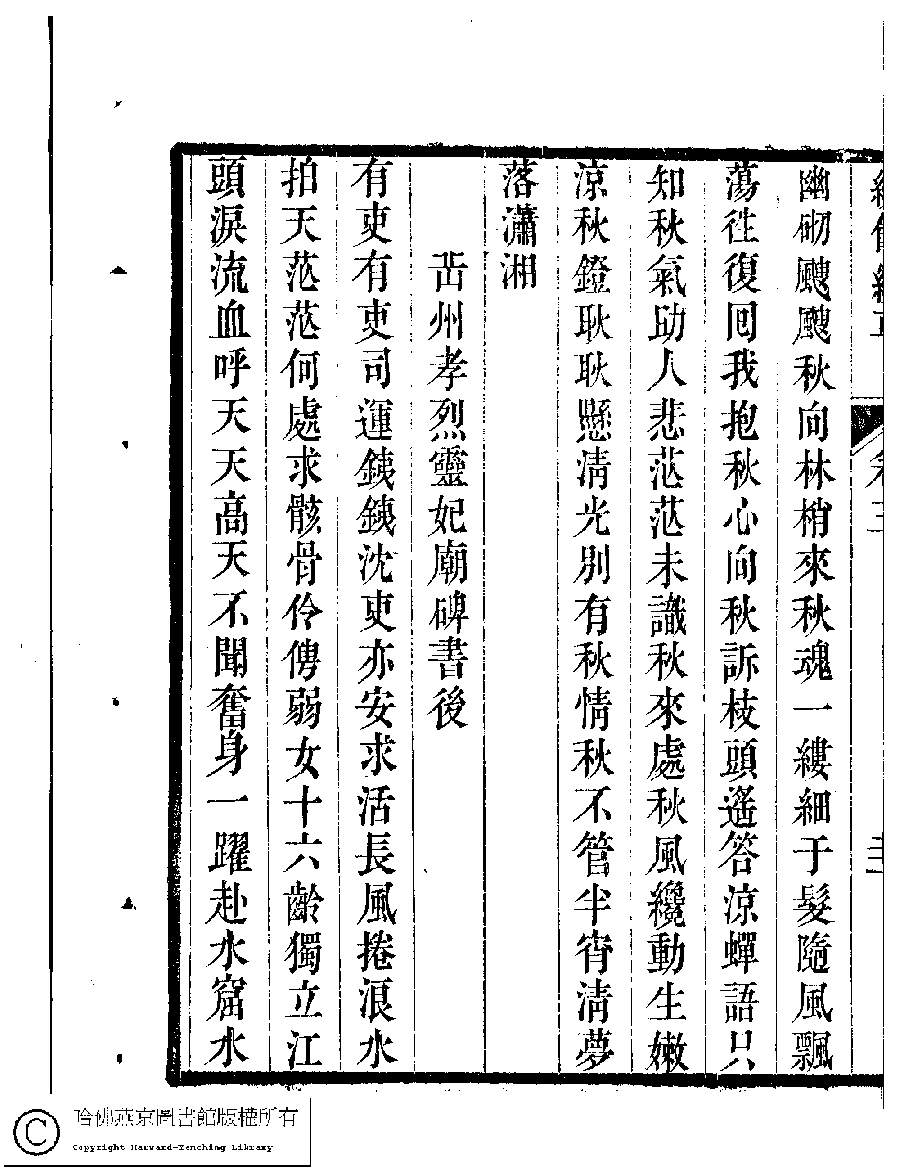 幽砌颼颼秋向林梢來秋魂一縷細于髮隨風飄
蕩往復回我抱秋心向秋訴枝頭遙答涼蟬語只
知秋氣助人悲茫茫未識秋來處秋風纔動生嫩
涼秋鐙耿耿懸淸光別有秋情秋不管半宵淸夢
落瀟湘
州孝烈靈妃廟碑書後
有吏有吏司運銕銕沈吏亦安求活長風捲浪水
拍天茫茫何處求骸骨伶俜弱女十六齡獨立江
頭淚流血呼天天高天不聞奮身一躍赴水窟水
哈佛燕京圖書館版權所有
Copyright Harvard-Yenching Library